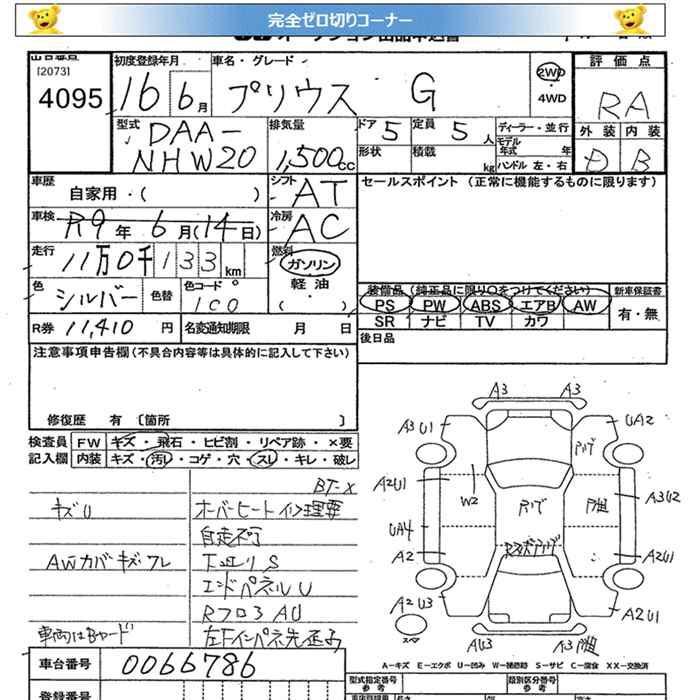 完全ゼロ切りコーナー
[2073]
4095
初度登録年月
16 6月
車名・グレード
プリウス G
2WD
・
4WD
評価点
RA
外装 内装
D B
型式
DAA-
NHW20
排気量
1,500cc
ドア 5
定員 5人
ディーラー・並行
モデル年式 年
形状
積載 kg
ハンドル 左・右
車歴
自家用・( )
シフト
AT
セールスポイント (正常に機能するものに限ります)
車検
R9年 6月(14日)
冷房
AC
走行
11万0千133km
燃料
ガソリン
・
軽油
・
( )
色
シルバー
色替
色コード
1C0
装備品(純正品に限り○をつけてください)
新車保証書
PS PW ABS エアB AW
SR ナビ TV カワ
有・無
R券 11,410円
名変通知期限 月 日
後日品
注意事項申告欄(不具合内容等は具体的に記入して下さい)
修復歴 有 [箇所 ]
検査員
記入欄
FW キズ・飛石・ヒビ割・リペア跡・×要
内装 キズ・汚レ・コゲ・穴・スレ・キレ・破レ
BT-X
キズU
オーバーヒート
自走不可
AWカバーキズ ワレ
下廻りS
エンドパネルU
Rフロア AU
車台番号 0066786
登録番号
A3 A3
A3U1 UA2
A2U1 W2 A3U2
UA4
A2 A2U1
A2U3 A2U1
AU3 A3
A-キズ E-エクボ U-凹み W-補修跡 S-サビ C-腐食 XX-交換済
型式指定番号
参考
類別区分番号
参考